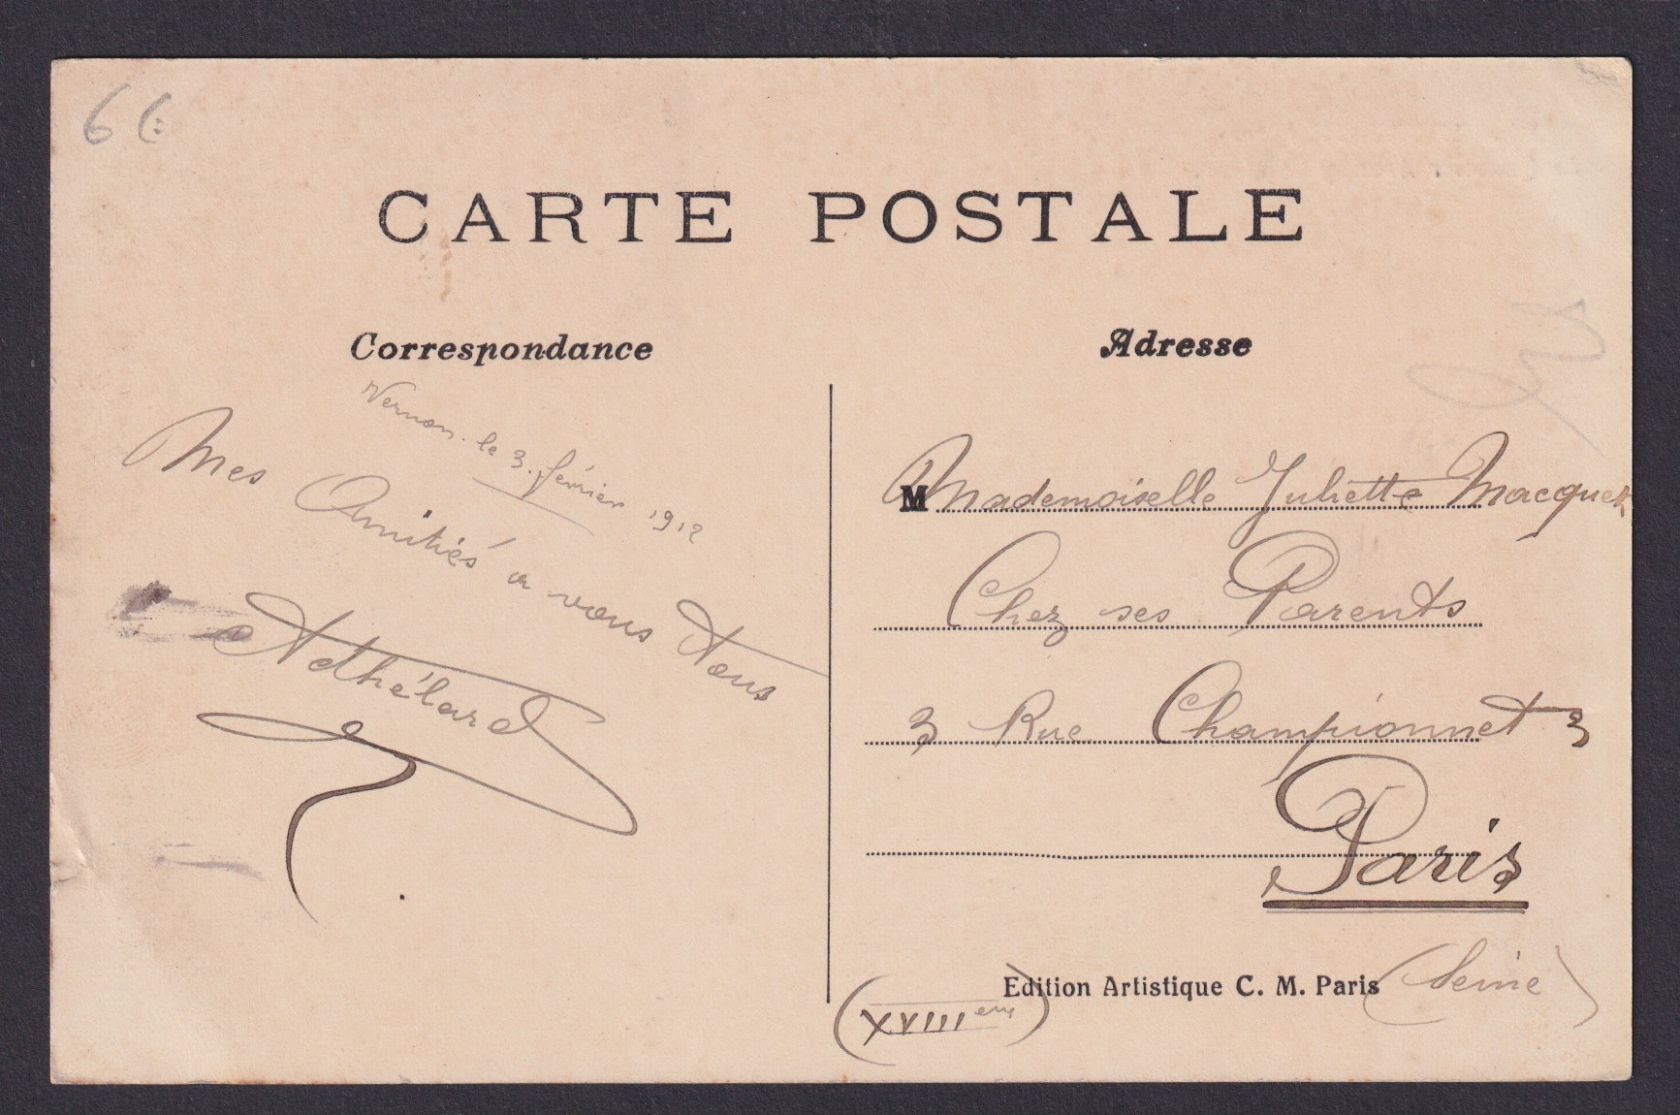 CARTE POSTALE
Correspondance
Vernon. le 3. février 1912
Mes Amitiés a vous Tous
Adresse
M Mademoiselle Juliette Macquet
Chez ses Parents
3 Rue Championnet 3
Paris
(Seine)
(XVIII eme)
Edition Artistique C. M. Paris